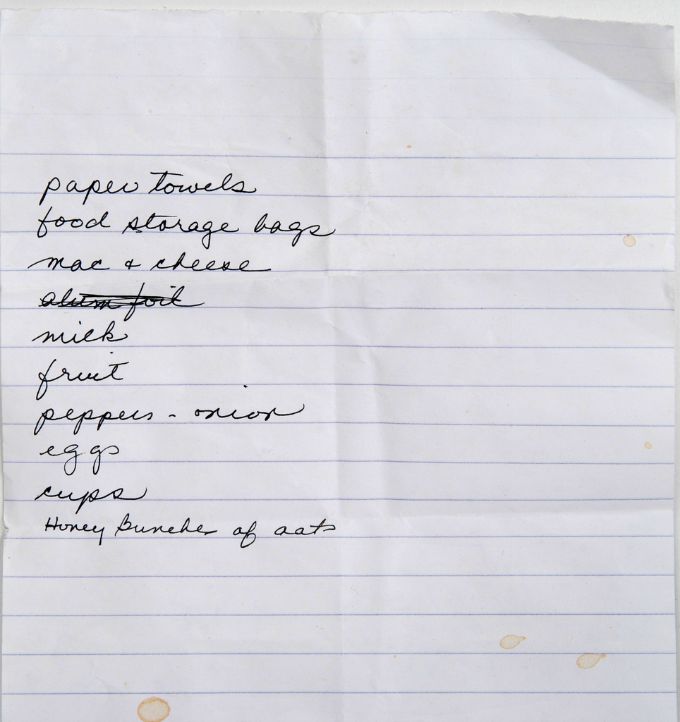 paper towels
food storage bags
mac & cheese
alum foil
milk
fruit
peppers - onion
eggs
cups
Honey Bunches of oats